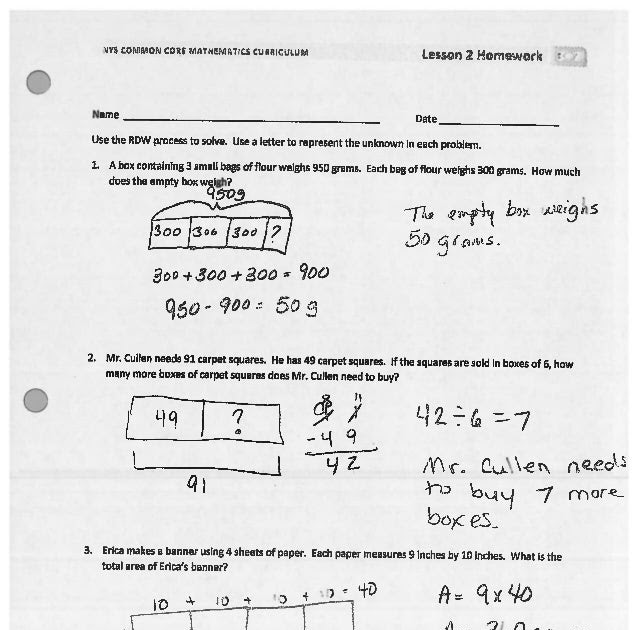 NYS COMMON CORE MATHEMATICS CURRICULUM
Lesson 2 Homework
Name
Date
Use the RDW process to solve. Use a letter to represent the unknown in each problem.
1. A box containing 3 small bags of flour weighs 950 grams. Each bag of flour weighs 300 grams. How much
does the empty box weigh?
950g
300 300 300 ?
The empty box weighs
50 grams.
300 + 300 + 300 = 900
950 - 900 = 50 g
2. Mr. Cullen needs 91 carpet squares. He has 49 carpet squares. If the squares are sold in boxes of 6, how
many more boxes of carpet squares does Mr. Cullen need to buy?
49 ?
91
8 11
9 1
- 4 9
4 2
42 ÷ 6 = 7
Mr. Cullen needs
to buy 7 more
boxes.
3. Erica makes a banner using 4 sheets of paper. Each paper measures 9 inches by 10 inches. What is the
total area of Erica's banner?
10 + 10 + 10 + 10 = 40
A = 9 x 40